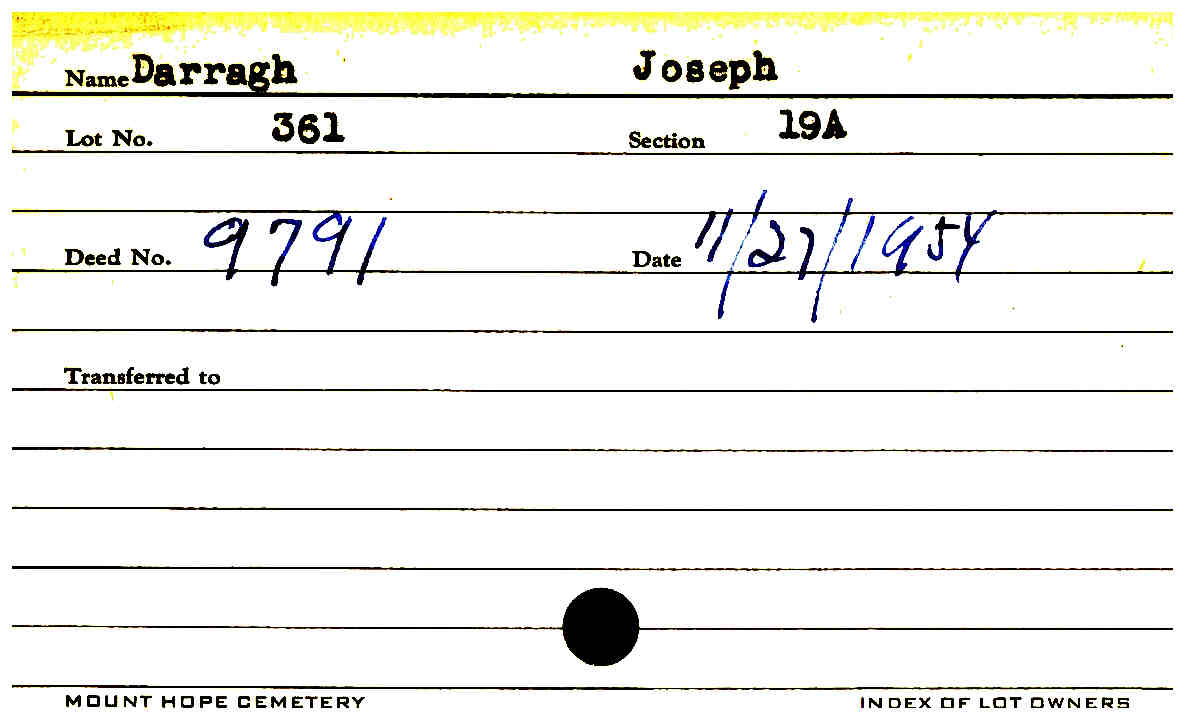 Name Darragh Joseph
Lot No. 361 Section 19A
Deed No. 9791 Date 11/27/1954
Transferred to
MOUNT HOPE CEMETERY INDEX OF LOT OWNERS